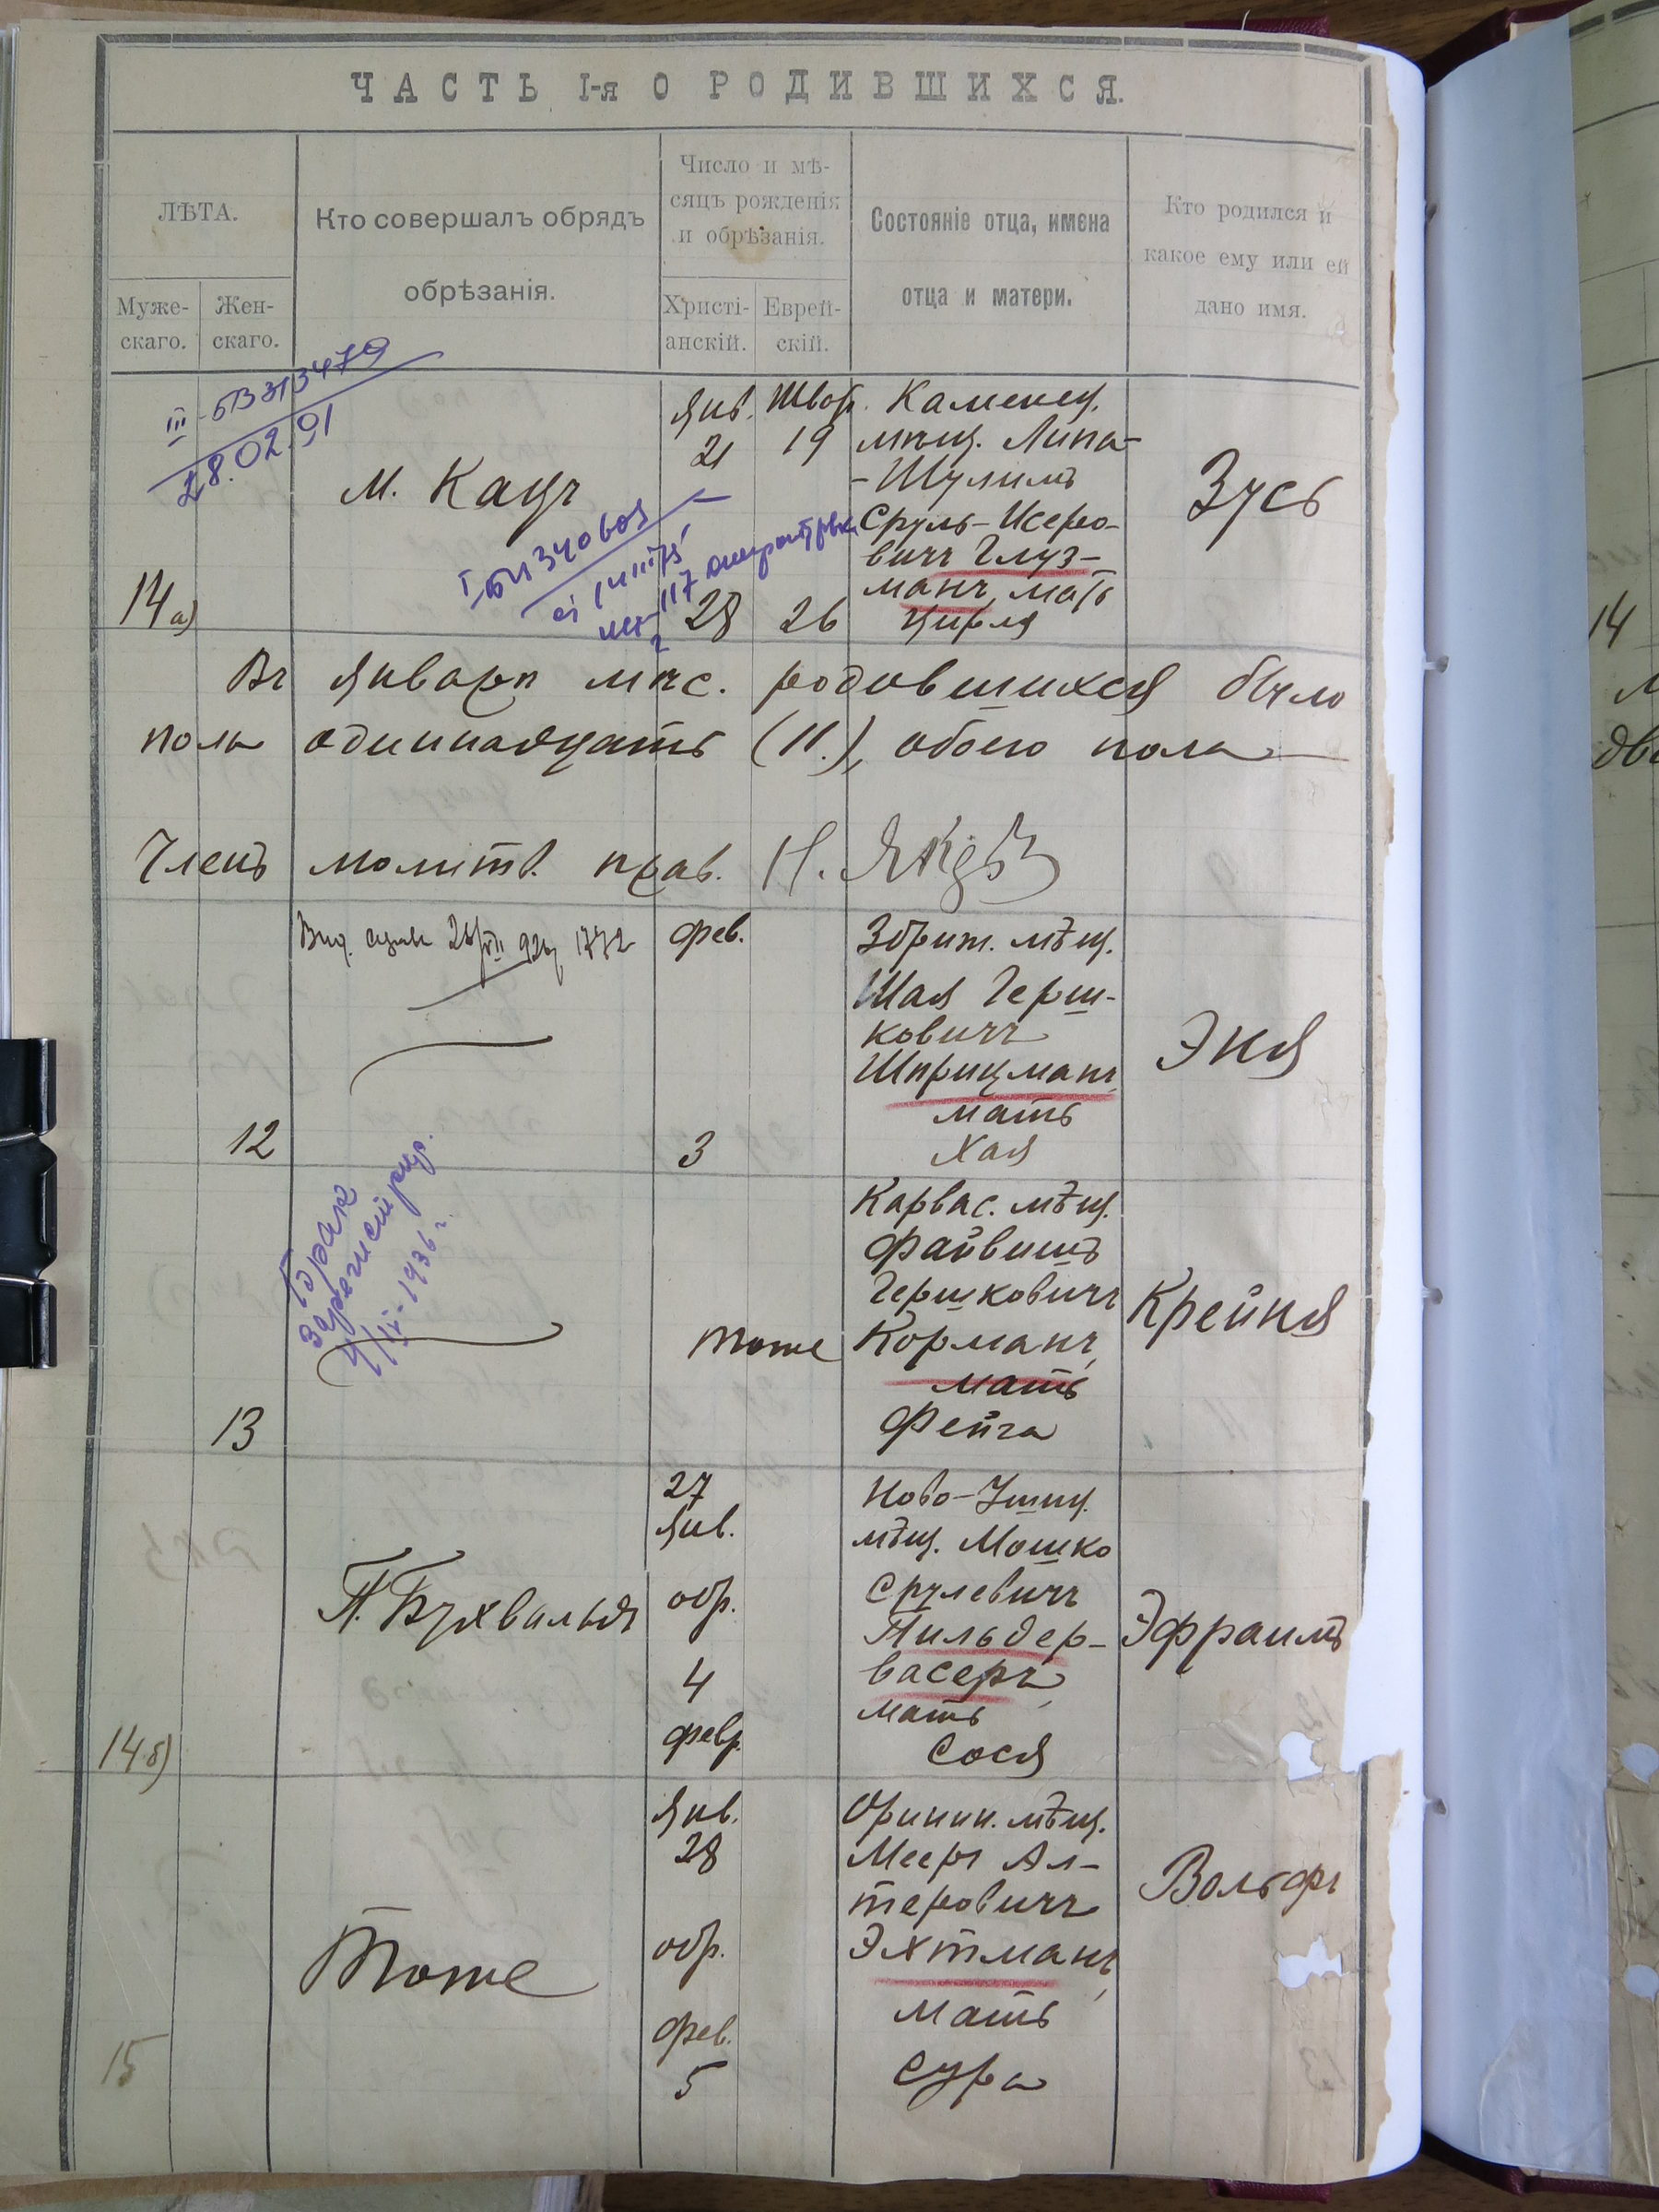 ЧАСТЬ I-я О РОДИВШИХСЯ.
ЛѢТА.
Муже-
скаго.
Жен-
скаго.
Кто совершалъ обрядъ
обрѣзанія.
Число и мѣ-
сяцъ рожденія
и обрѣзанія.
Христі-
анскій.
Еврей-
скій.
Состояніе отца, имена
отца и матери.
Кто родился и
какое ему или ей
дано имя.
28.02.91
14 а)
М. Кацъ
Янв.
21
28
Швот.
19
26
Каменец.
мѣщ. Липа-
-Шулимъ
Сруль-Исеро-
вичъ Глуз-
манъ, мать
Цирля
Зусь
Въ январѣ мѣс. родившихся было
пола одиннадцать (11.), обоего пола
Членъ молитв. прав. Н.
12
фев.
3
Збриж. мѣщ.
Шая Герш-
ковичъ
Шприцманъ,
мать
Хая
Эня
Брак
зарегистрир.
1936 г.
13
тоже
Карвас. мѣщ.
Файвишъ
Гершковичъ
Корманъ,
мать
Фейга
Крейня
14 б)
П. Бухвальдъ
27
Янв.
обр.
4
февр.
Ново-Ушиц.
мѣщ. Мошко
Срулевичъ
Пильдер-
васеръ,
мать
Сося
Эфраимъ
15
Тоже
Янв.
28
обр.
фев.
5
Оринин. мѣщ.
Мееръ Ал-
теровичъ
Эхтманъ,
мать
Сура
Вольфъ
14